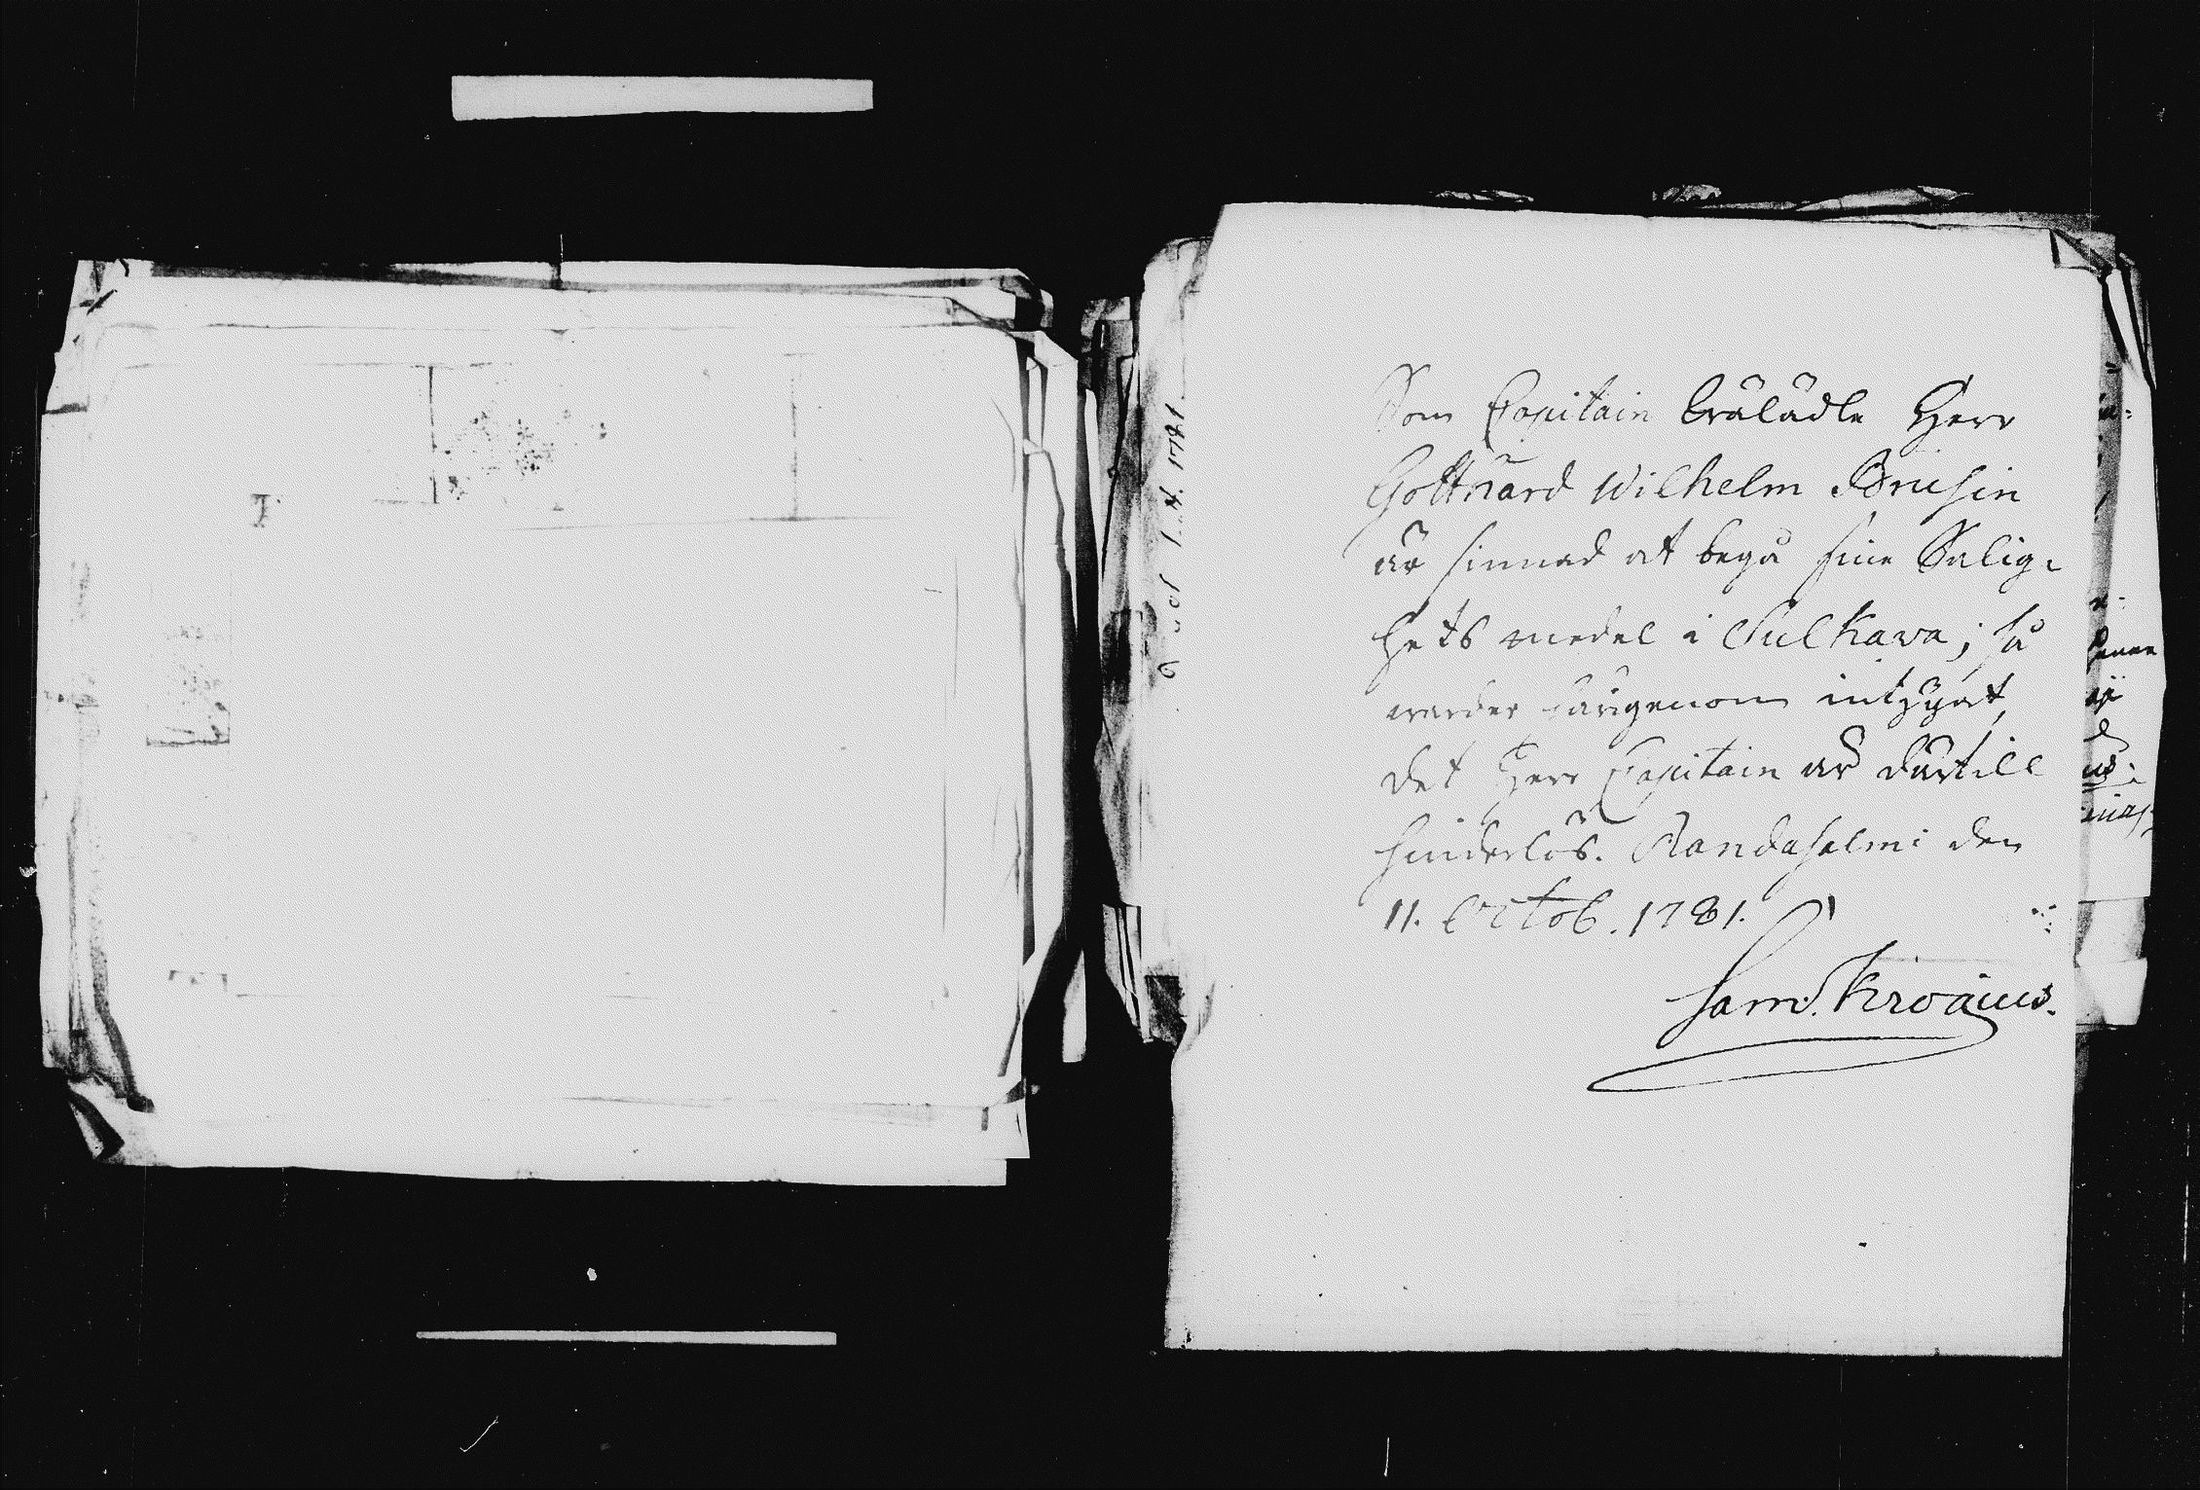 Som Capitain Wälädle Herr
Gotthard Wilhelm Brusin
är sinnad at begå sine Salig-
hets medel i Sulkava; så
warder härigenom intygat,
det Herr Capitain är därtill
hinderlös. Randasalmi den
11. Octob. 1781.
Sam. Kiroaius.